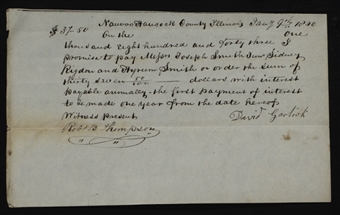 Nauvoo Hancock County Illinois Jany 9th 1840
$37.50 On the one
thousand eight hundred and forty three I
promise to pay Messrs Joseph Smith Junr Sidney
Rigdon and Hyrum Smith or order the sum of
thirty seven 50 dollars with interest
payable annually the first payment of interest
to be made one year from the date hereof
Witness present
Robt B Thompson David Garlick